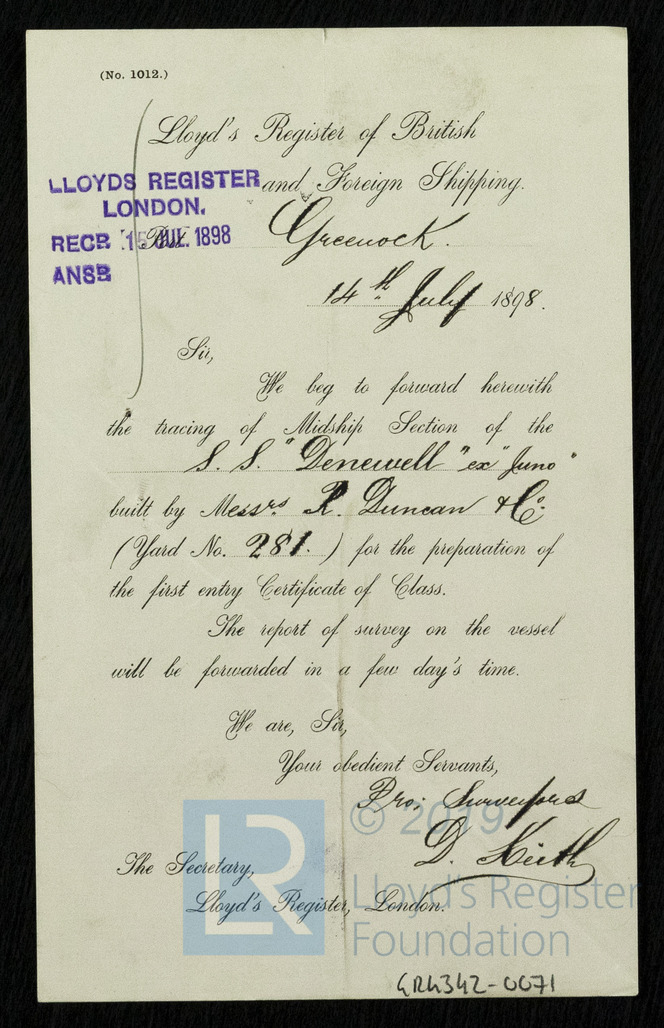 (No. 1012.)
Lloyd's Register of British
and Foreign Shipping.
LLOYDS REGISTER
LONDON.
RECR 15 JUL 1898
ANSB
Port Greenock.
14th July 1898.
Sir,
We beg to forward herewith
the tracing of Midship Section of the
S. S. "Denewell" "ex" Juno"
built by Messrs R. Duncan & Co.
(Yard No. 281.) for the preparation of
the first entry Certificate of Class.
The report of survey on the vessel
will be forwarded in a few day's time.
We are, Sir,
Your obedient Servants,
Pro; Surveyors
D. Keith
The Secretary,
Lloyd's Register, London.
LR
© 2019
Lloyd's Register
Foundation
GRK342-0071